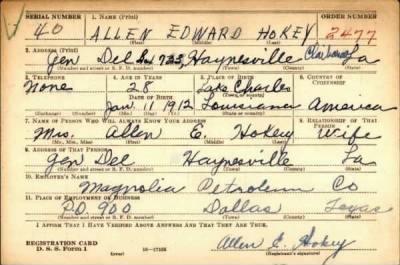 SERIAL NUMBER 1. NAME (Print) ORDER NUMBER
40 ALLEN EDWARD HOKEY 2477
(First) (Middle) (Last)
2. ADDRESS (Print)
Gen Del Haynesville La
(Number and street or R. F. D. number) (Town) (County) (State)
3. TELEPHONE 4. AGE IN YEARS 5. PLACE OF BIRTH 6. COUNTRY OF CITIZENSHIP
None 28 Lake Charles
DATE OF BIRTH
Jan. 11 1912 Louisiana America
(Exchange) (Number) (Mo.) (Day) (Yr.) (State or country)
7. NAME OF PERSON WHO WILL ALWAYS KNOW YOUR ADDRESS 8. RELATIONSHIP OF THAT PERSON
Mrs. Allen E. Hokey Wife
(Mr., Mrs., Miss) (First) (Middle) (Last)
9. ADDRESS OF THAT PERSON
Gen Del Haynesville La
(Number and street or R. F. D. number) (Town) (County) (State)
10. EMPLOYER'S NAME
Magnolia Petroleum Co
11. PLACE OF EMPLOYMENT OR BUSINESS
P.O. 900 Dallas Texas
(Number and street or R. F. D. number) (Town) (County) (State)
I AFFIRM THAT I HAVE VERIFIED ABOVE ANSWERS AND THAT THEY ARE TRUE.
REGISTRATION CARD
D. S. S. Form 1 16-17105 Allen E. Hokey
(Registrant's signature)